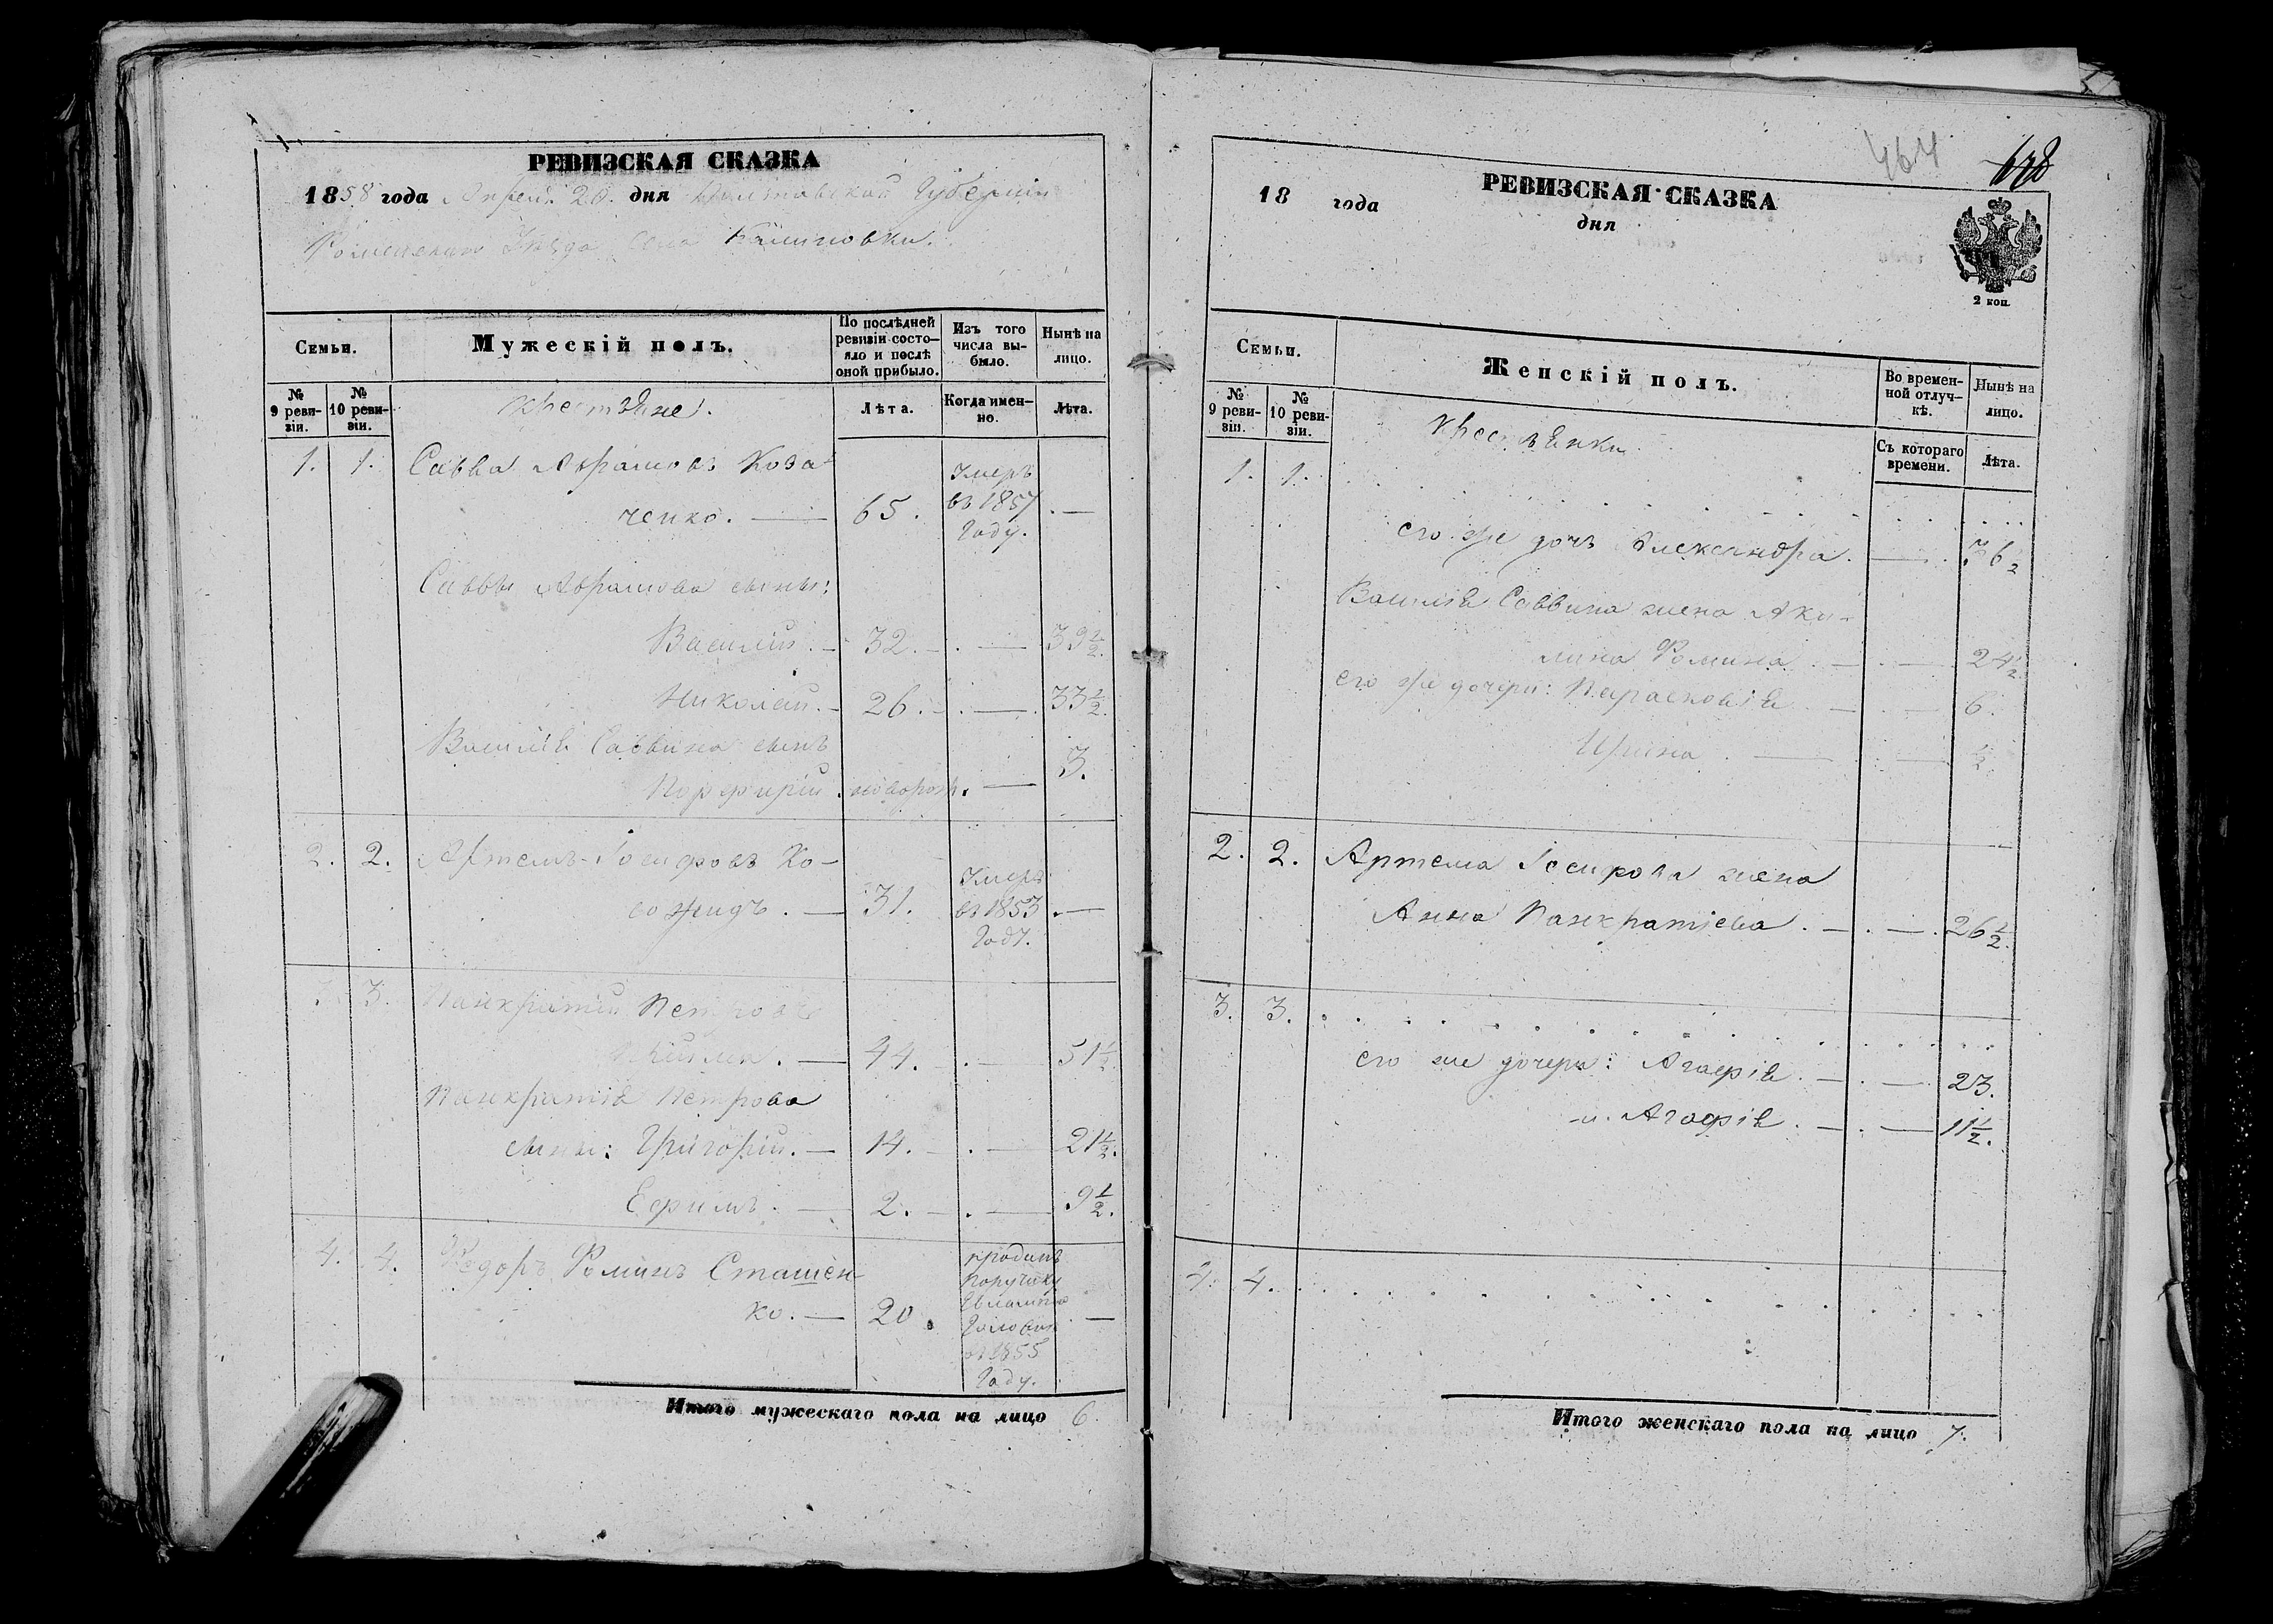 РЕВИЗСКАЯ СКАЗКА
1858 года Апреля 20. дня Полтавской Губернии
Роменскаго Уѣзда села Калиновки.
Семьи.
Мужескій полъ.
По послѣдней ревизіи состо-
яло и послѣ
оной прибыло.
Изъ того
числа вы-
было.
Нынѣ на
лицо.
№
9 реви-
зіи.
№
10 реви-
зіи.
Крестьяне.
Лѣта.
Когда имен-
но.
Лѣта.
1. 1. Савва Абрамовъ Коза-
ченко. — 65. Умеръ въ 1857 Году. —
Саввы Абрамова сыны:
Василій. — 32. — 39½.
Николай. — 26. — 33½.
Василія Саввина сынъ
Порфирій. новорож. — 3.
2. 2. Артемъ Іосифовъ Ко-
— 31. Умеръ въ 1853 Году. —
3. 3. Панкратій Петровъ
— 44. — 51½
Панкратія Петрова
сыны: Григорій. — 14. — 21½.
Ефимъ. — 2. — 9½.
4. 4. Федоръ Фоминъ Сташен-
ко. — 20. проданъ
поручику
въ 1855
Году. —
Итого мужескаго пола на лицо 6.
464
678
РЕВИЗСКАЯ СКАЗКА
18 года дня
2 коп.
Семьи.
Женскій полъ.
Во времен-
ной отлуч-
кѣ.
Нынѣ на
лицо.
№
9 реви-
зіи.
№
10 реви-
зіи.
Крестьянки
Съ котораго
времени.
Лѣта.
1. 1.
его же дочь Александра. — 36½
Василія Саввина жена Аку-
лина Фомина. — 24½
его же дочери: Парасковія — 6.
Ирина. — ½.
2. 2. Артема Іосифова жена
Анна Панкратіева. — 26½.
3. 3.
его же дочери: Агафія. — 23.
и Агафія. — 11½.
4. 4.
Итого женскаго пола на лицо 7.